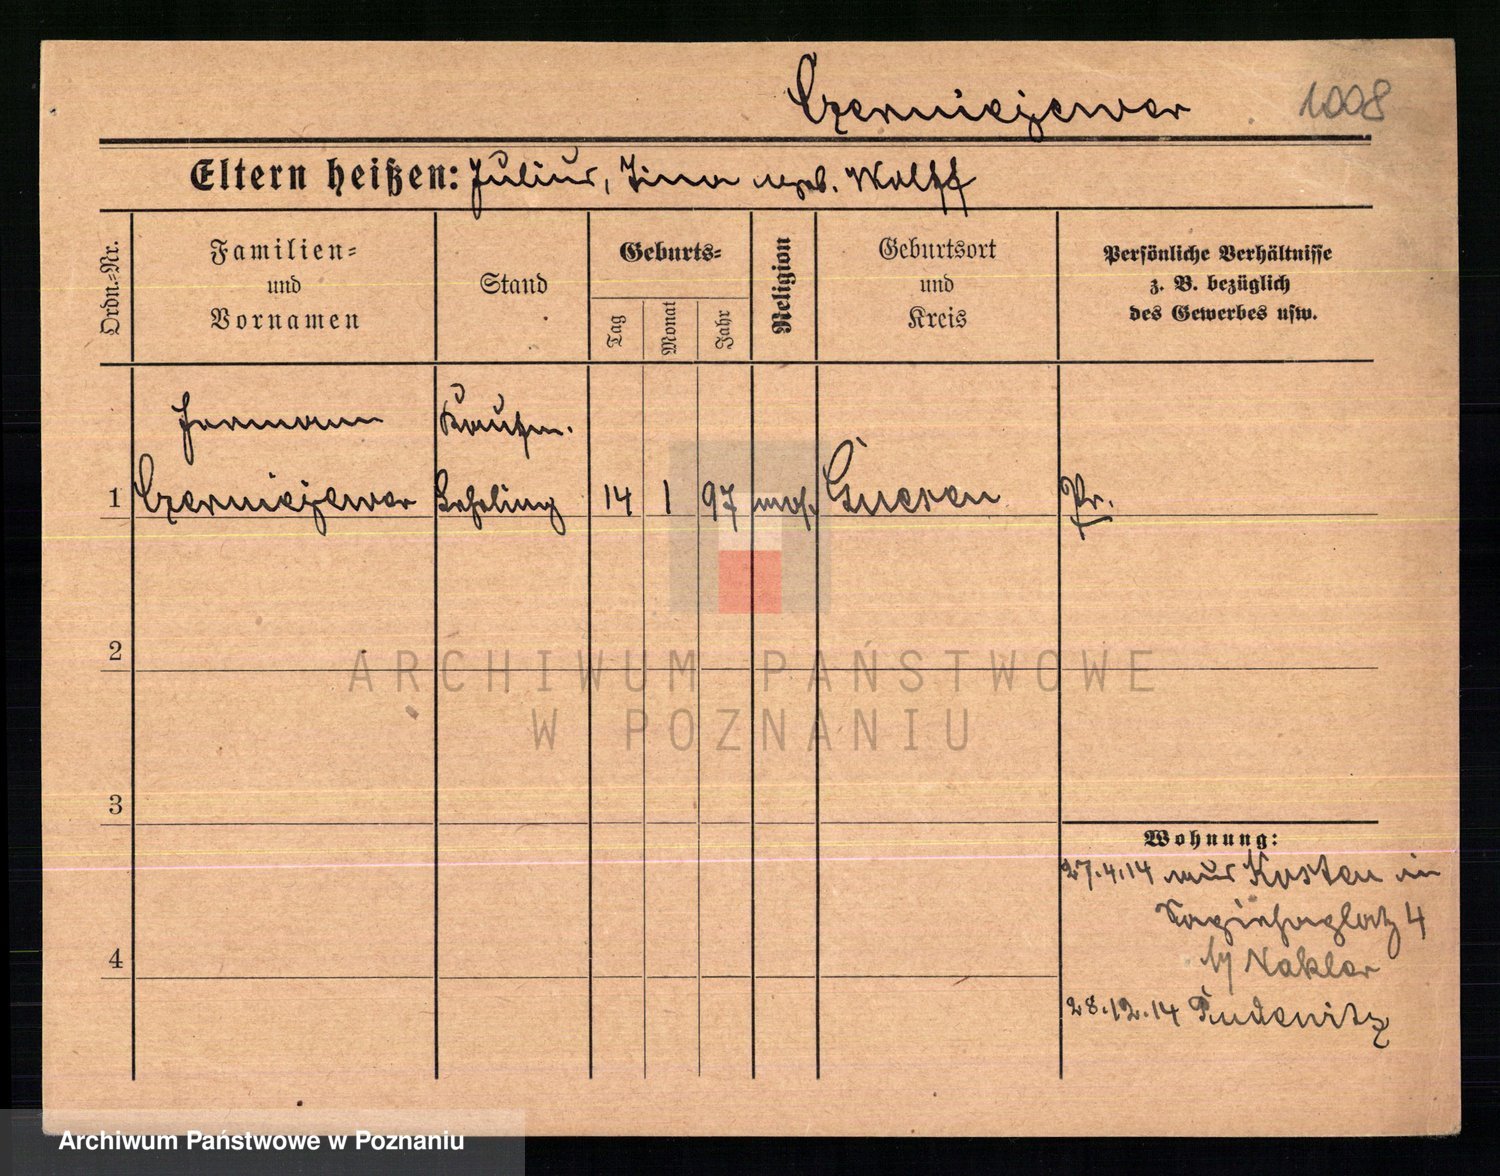 Czerniejewer
1008
Eltern heißen: Julius, Lina geb. Wolff
Ordn.-Nr.
Familien-
und
Vornamen
Stand
Geburts-
Tag
Monat
Jahr
Religion
Geburtsort
und
Kreis
Persönliche Verhältnisse
z. B. bezüglich
des Gewerbes usw.
Hermann
Kaufm.
1
Czerniejewer
Lehrling
14
1
97
mos.
Gnesen
Pr.
2
ARCHIWUM PAŃSTWOWE
W POZNANIU
3
Wohnung:
27.4.14 aus Kosten in
Sapiehaplatz 4
b/ Nakler
4
28.12.14 Pudewitz
Archiwum Państwowe w Poznaniu